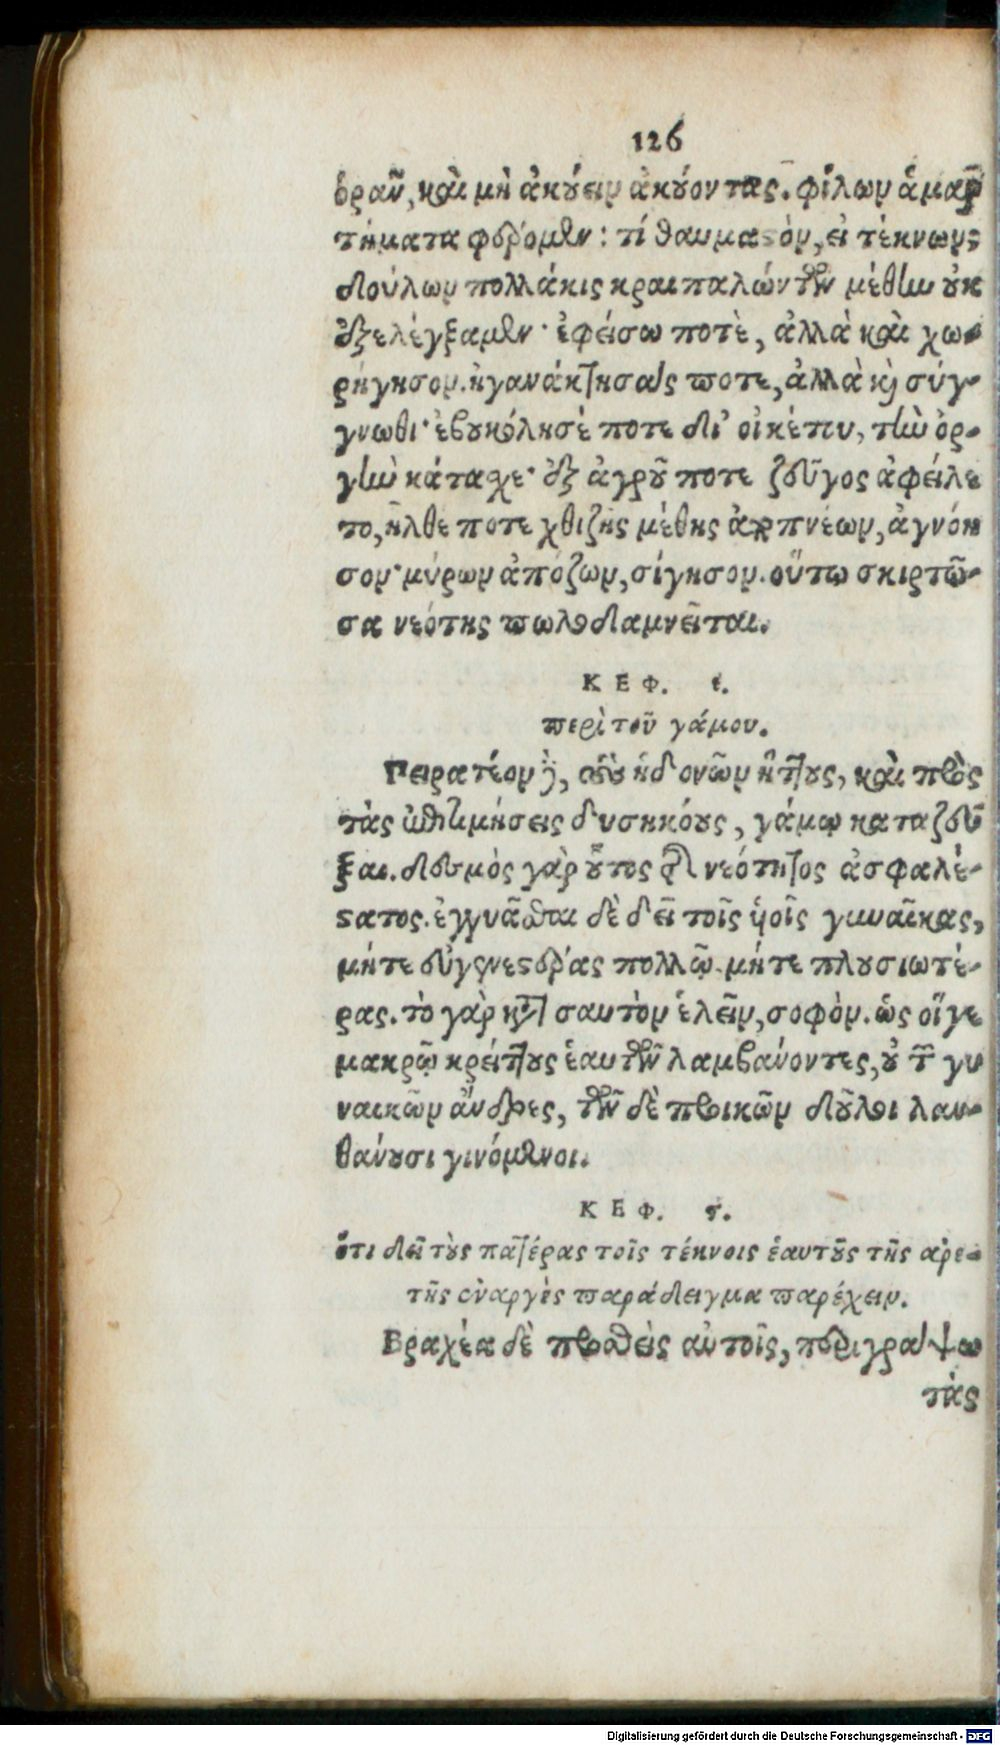 126
ὁρᾶν, καὶ μὴ ἀκούειν ἀκούοντας. φίλων ἁμαρ
τήματα φέρομεν: τί θαυμαστὸν, εἰ τέκνων;
δούλων πολλάκις κραιπαλώντων μέθην οὐκ
ἐξελέγξαμεν· ἐφείσω ποτὲ, ἀλλὰ καὶ χω-
ρήγησον. ἠγανάκτησας ποτε, ἀλλὰ καὶ σύγ-
γνωθι· ἐβουκόλησέ ποτε δι’ οἰκέτου, τὴν ὀρ-
γὴν κάτασχε· ἐξ ἀγροῦ ποτε ζεῦγος ἀφείλε
το, ἦλθε ποτε χθιζῆς μέθης ἀποπνέων, ἀγνόη
σον· μύρων ἀπόζων, σίγησον. οὕτω σκιρτῶ-
σα νεότης πωλοδαμνεῖται.
ΚΕΦ. ε.
περὶ τοῦ γάμου.
Πειρατέον δὲ, τοὺς ἡδονῶν ἥττους, καὶ πρὸς
τὰς ἐπιτιμήσεις δυσηκόους, γάμῳ καταζεῦ
ξαι. δεσμὸς γὰρ οὗτος τῆς νεότητος ἀσφαλέ-
στατος. ἐγγυᾶσθαι δὲ δεῖ τοῖς υἱοῖς γυναῖκας,
μήτε εὐγενεστέρας πολλῷ. μήτε πλουσιωτέ-
ρας. τὸ γὰρ κατὰ σαυτὸν ἑλεῖν, σοφὸν. ὡς οἵγε
μακρῷ κρείττους ἑαυτῶν λαμβάνοντες, οὐ τῶν γυ
ναικῶν ἄνδρες, τῶν δὲ προικῶν δοῦλοι λαν-
θάνουσι γινόμενοι.
ΚΕΦ. ϛ.
ὅτι δεῖ τοὺς πατέρας τοῖς τέκνοις ἑαυτοὺς τῆς αρε-
τῆς ἐναργὲς παράδειγμα παρέχειν.
Βραχέα δὲ προσθεὶς αὐτοῖς, περιγράψω
τὰς
Digitalisierung gefördert durch die Deutsche Forschungsgemeinschaft - DFG